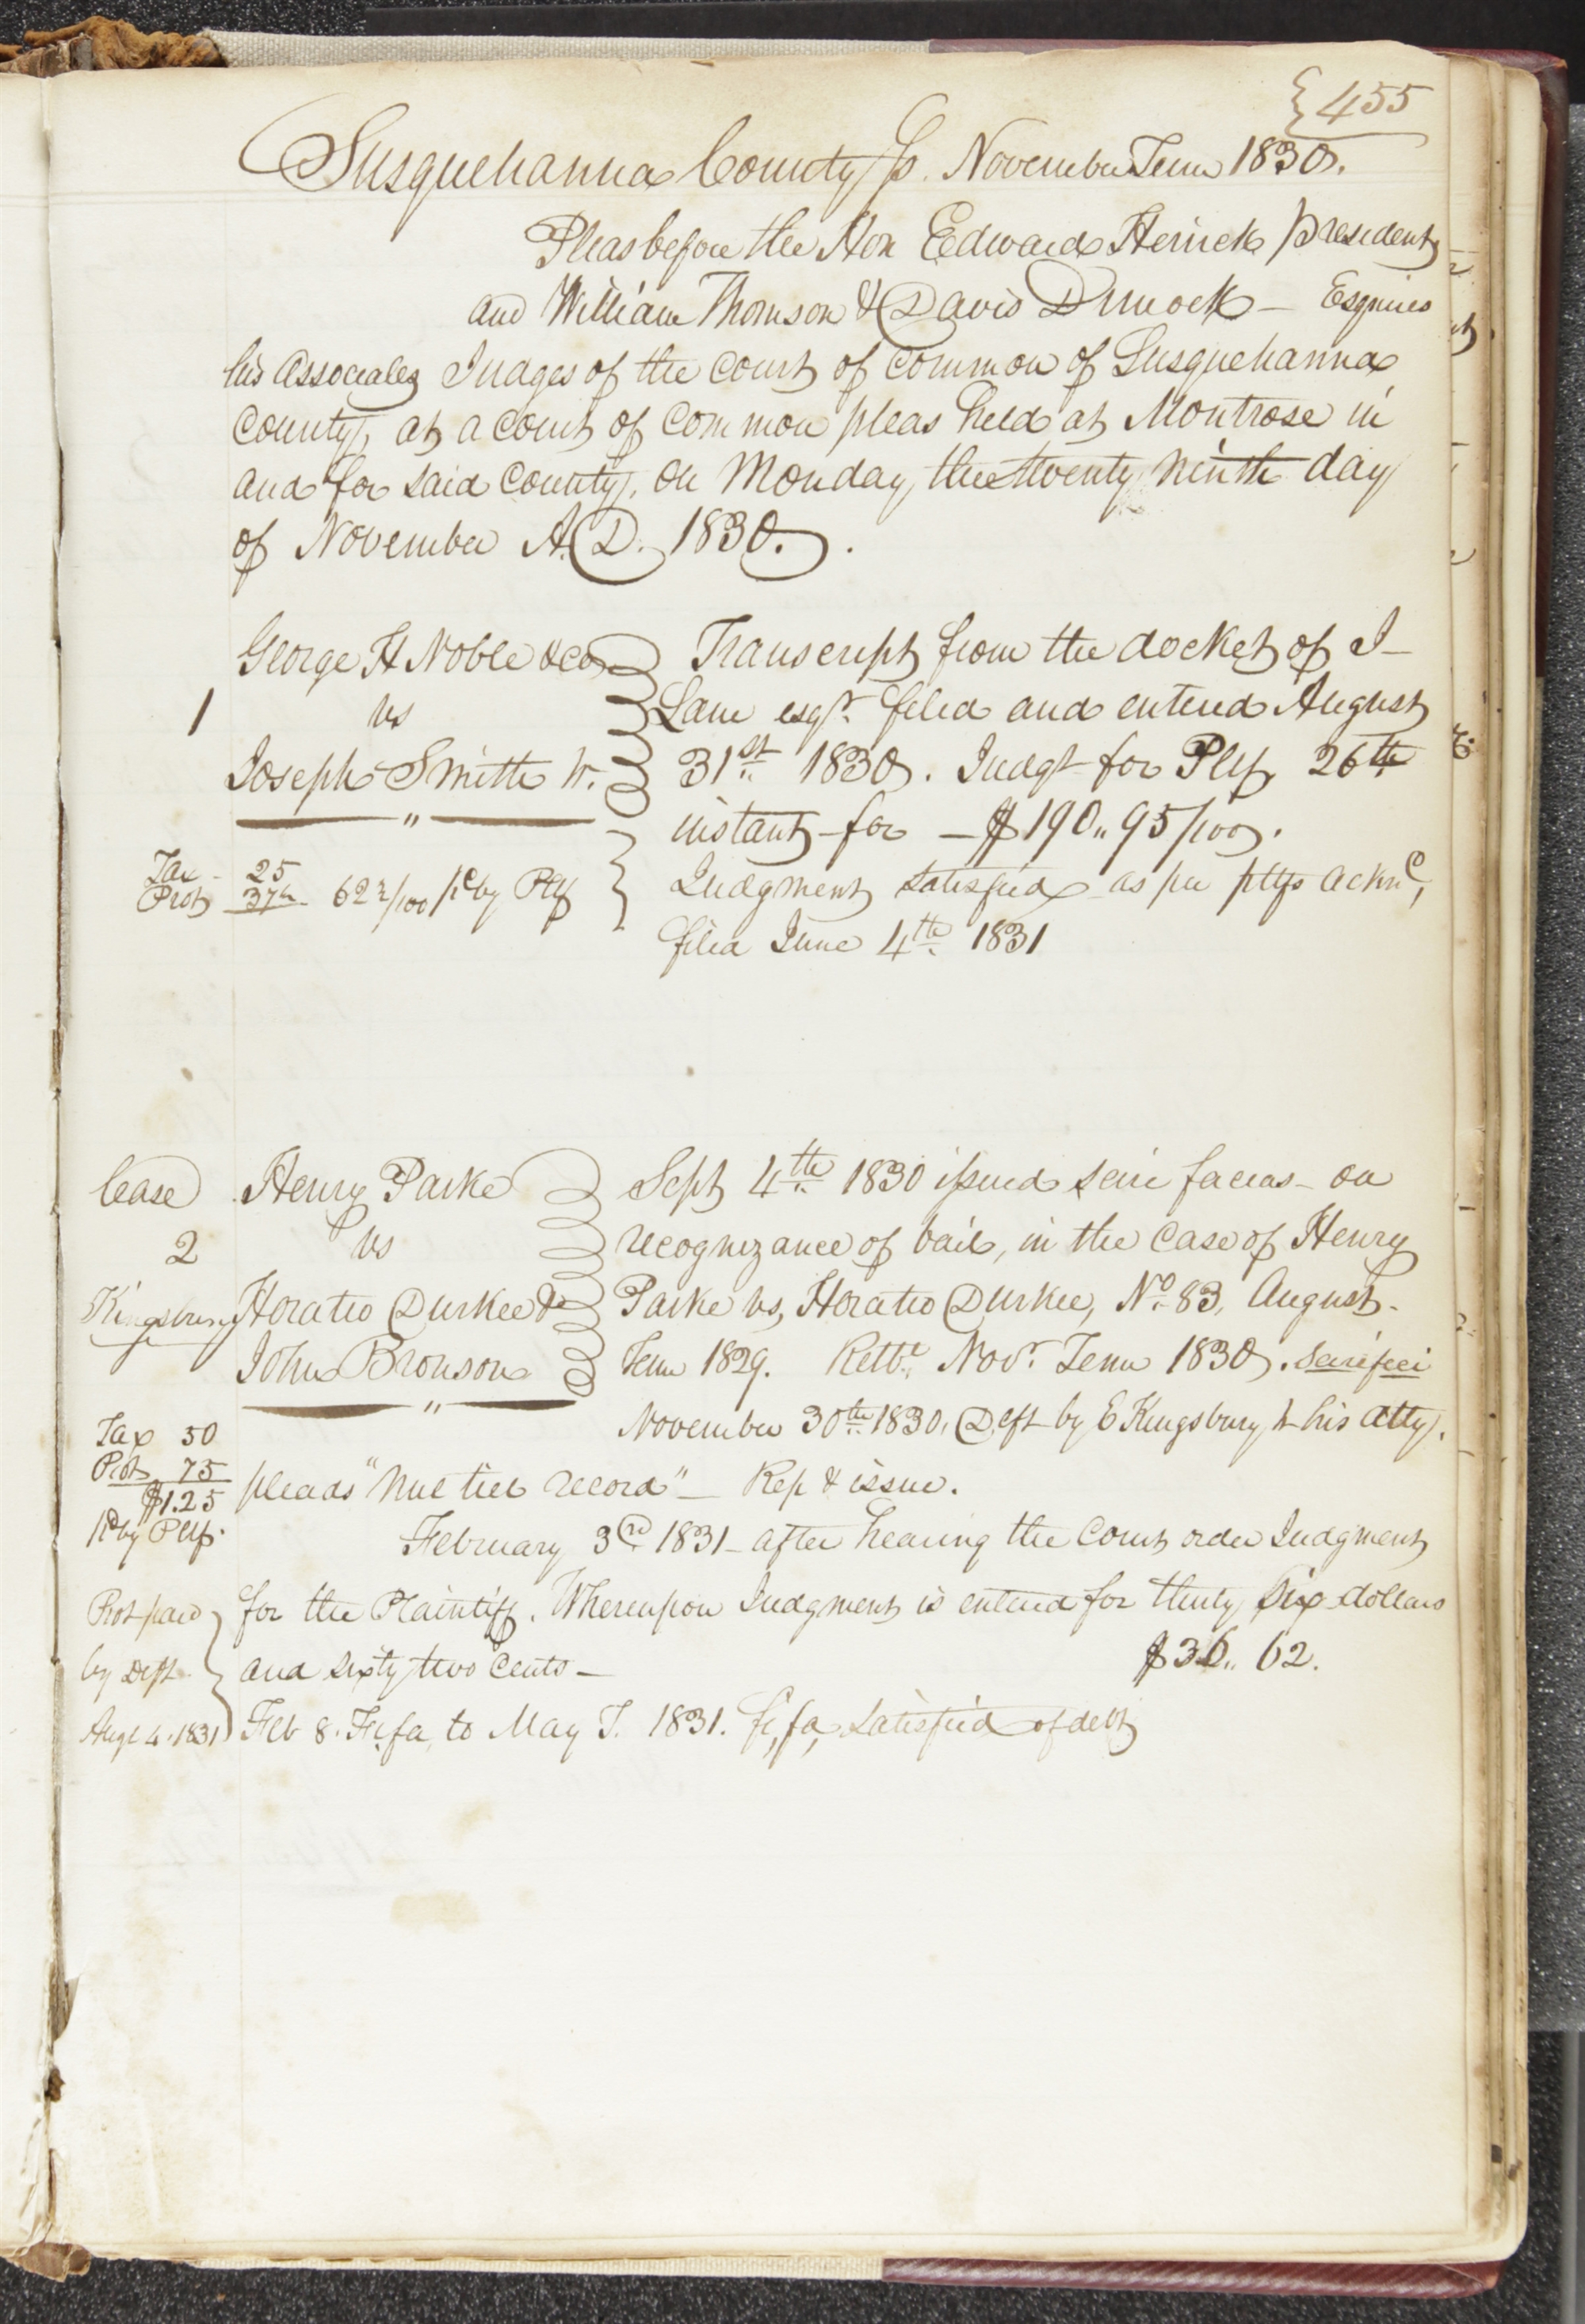 455
Susquehanna County Ss. November Term 1830.
Pleas before the Hon Edward Herrick president
and William Thomson & David Dimock — Esquires
his Associates Judges of the Court of Common of Susquehanna
County, at a Court of Common pleas held at Montrose in
and for said County, on Monday, the twenty ninth day
of November A.D. 1830.
George H Noble & Co Transcript from the docket of I
1 vs Lane esqr. filed and entered August
Joseph Smith Jr. 31st 1830. Judgt for Plff 26th
instant for — $190..95/100.
Tax - 25 Judgment satisfied as per plffs acknd,
Prot 37½ 62½/100 pd by Plff
filed June 4th 1831
Case Henry Parke Sept 4th 1830 issued scire facias on
2 vs recognizance of bail, in the case of Henry
Kingsbury Horatio Durkee & Parke vs, Horatio Durkee, No. 83, August
John Bronson Term 1829. Retbe. Novr. Term 1830. scire feci
Tax 50 November 30th 1830, Deft by E Kingsbury Jr his atty.
Prot 75 pleads "nul tiel record" — Rep & issue.
$1.25
pd by Plff. February 3rd 1831 – after hearing the Court order Judgment
Prot paid for the Plaintiff. Whereupon Judgment is entered for thirty six dollars
by Deft and sixty two Cents — $36.. 62.
Augt 4. 1831 Feb 8. Fi, fa, to May T. 1831. fi, fa, satisfied of debt